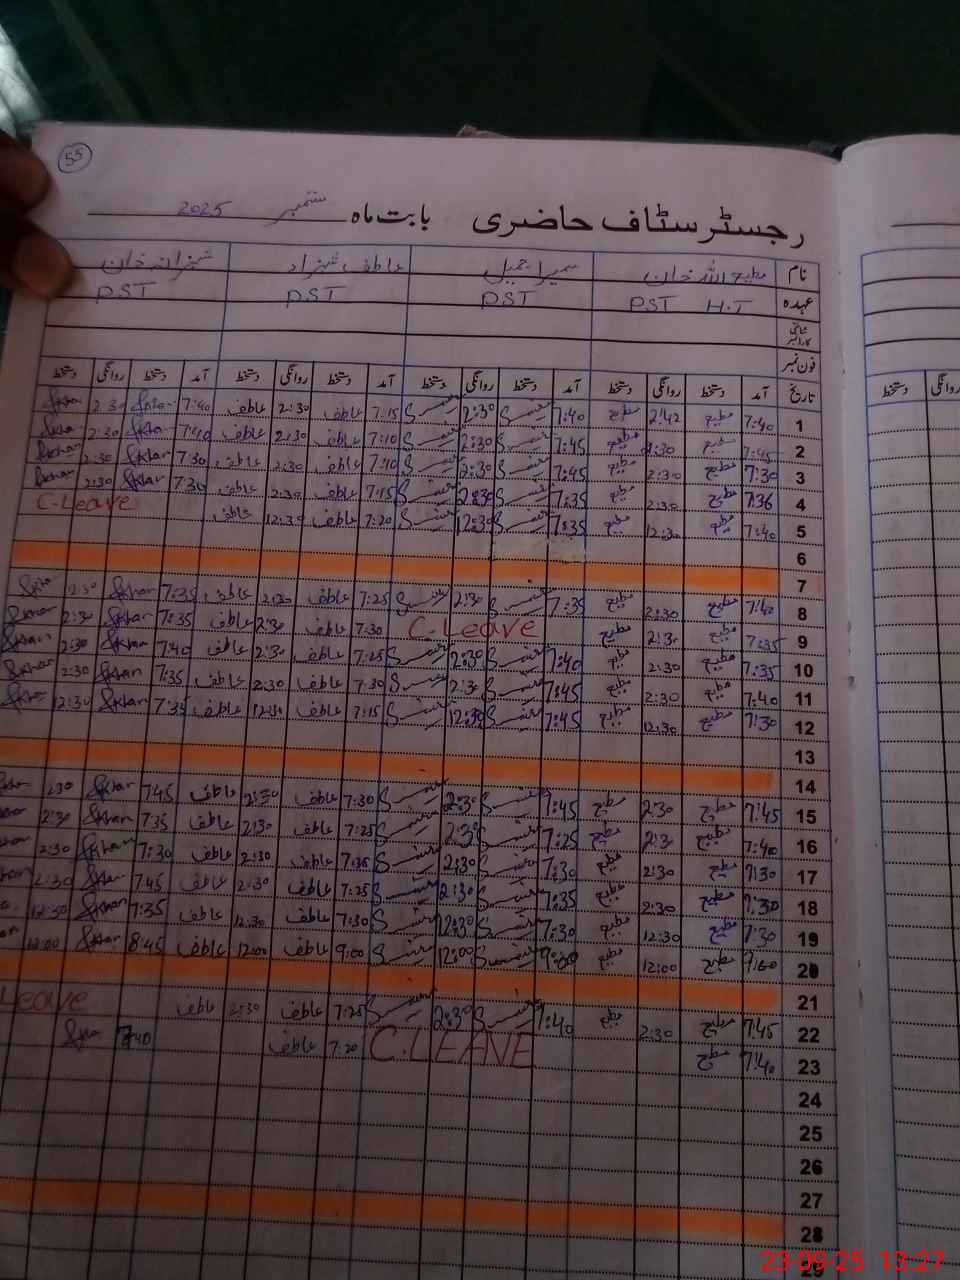 55
رجسٹر سٹاف حاضری بابت ماہ ستمبر 2025
نام مطیع اللہ خان سمیرا جمیل عاطف شہزاد شہزانہ خان
عہدہ PST H.T PST PST PST
فون نمبر
تاریخ آمد دستخط روانگی دستخط آمد دستخط روانگی دستخط آمد دستخط روانگی دستخط آمد دستخط روانگی دستخط
1 7:40 مطیع 2:42 مطیع 7:40 2:30 7:15 عاطف 2:30 عاطف 7:40 Skhan 2:30 Skhan
2 7:45 مطیع 2:30 مطیع 7:45 2:30 7:10 عاطف 2:30 عاطف 7:40 Skhan 2:30
3 7:30 مطیع 2:30 مطیع 7:45 2:30 7:10 عاطف 2:30 عاطف 7:30 Skhan 2:30 Skhan
4 7:36 مطیع 2:30 مطیع 7:35 2:30 7:15 عاطف 2:30 عاطف 7:30 Skhan 2:30 Skhan
5 7:40 مطیع 12:30 مطیع 7:35 12:30 7:20 عاطف 12:30 عاطف C-Leave
6
7
8 7:40 مطیع 2:30 مطیع 7:35 2:30 7:25 عاطف 2:30 عاطف 7:35 Skhan 12:30
9 7:35 مطیع 2:30 مطیع C-Leave 7:30 عاطف 2:30 عاطف 7:35 Skhan 2:30 Skhan
10 7:35 مطیع 2:30 مطیع 7:40 2:30 7:25 عاطف 2:30 عاطف 7:40 Skhan 2:30 Skhan
11 7:40 مطیع 2:30 مطیع 7:45 2:30 7:30 عاطف 2:30 عاطف 7:35 Skhan 2:30 Skhan
12 7:30 مطیع 12:30 مطیع 7:45 12:30 7:15 عاطف 12:30 عاطف 7:35 Skhan 12:30
13
14
15 7:45 مطیع 2:30 مطیع 7:45 2:30 7:30 عاطف 2:30 عاطف 7:45 Skhan 2:30
16 7:40 مطیع 2:30 مطیع 7:25 2:30 7:25 عاطف 2:30 عاطف 7:35 Skhan 2:30
17 7:30 مطیع 2:30 مطیع 7:30 2:30 7:35 عاطف 2:30 عاطف 7:30 Skhan 2:30
18 7:30 مطیع 2:30 مطیع 7:35 2:30 7:25 عاطف 2:30 عاطف 7:45 Skhan 2:30
19 7:30 مطیع 12:30 مطیع 7:30 12:30 7:30 عاطف 12:30 عاطف 7:35 Skhan 12:30
20 9:00 مطیع 12:00 مطیع 9:00 12:00 9:00 عاطف 12:00 عاطف 8:45 Skhan 12:00
21
22 7:45 مطیع 2:30 مطیع 7:40 2:30 7:25 عاطف 2:30 عاطف Leave
23 7:40 مطیع C.LEAVE 7:20 عاطف 7:40
24
25
26
27
28
29
دستخط روانگی
23-09-25 13:27